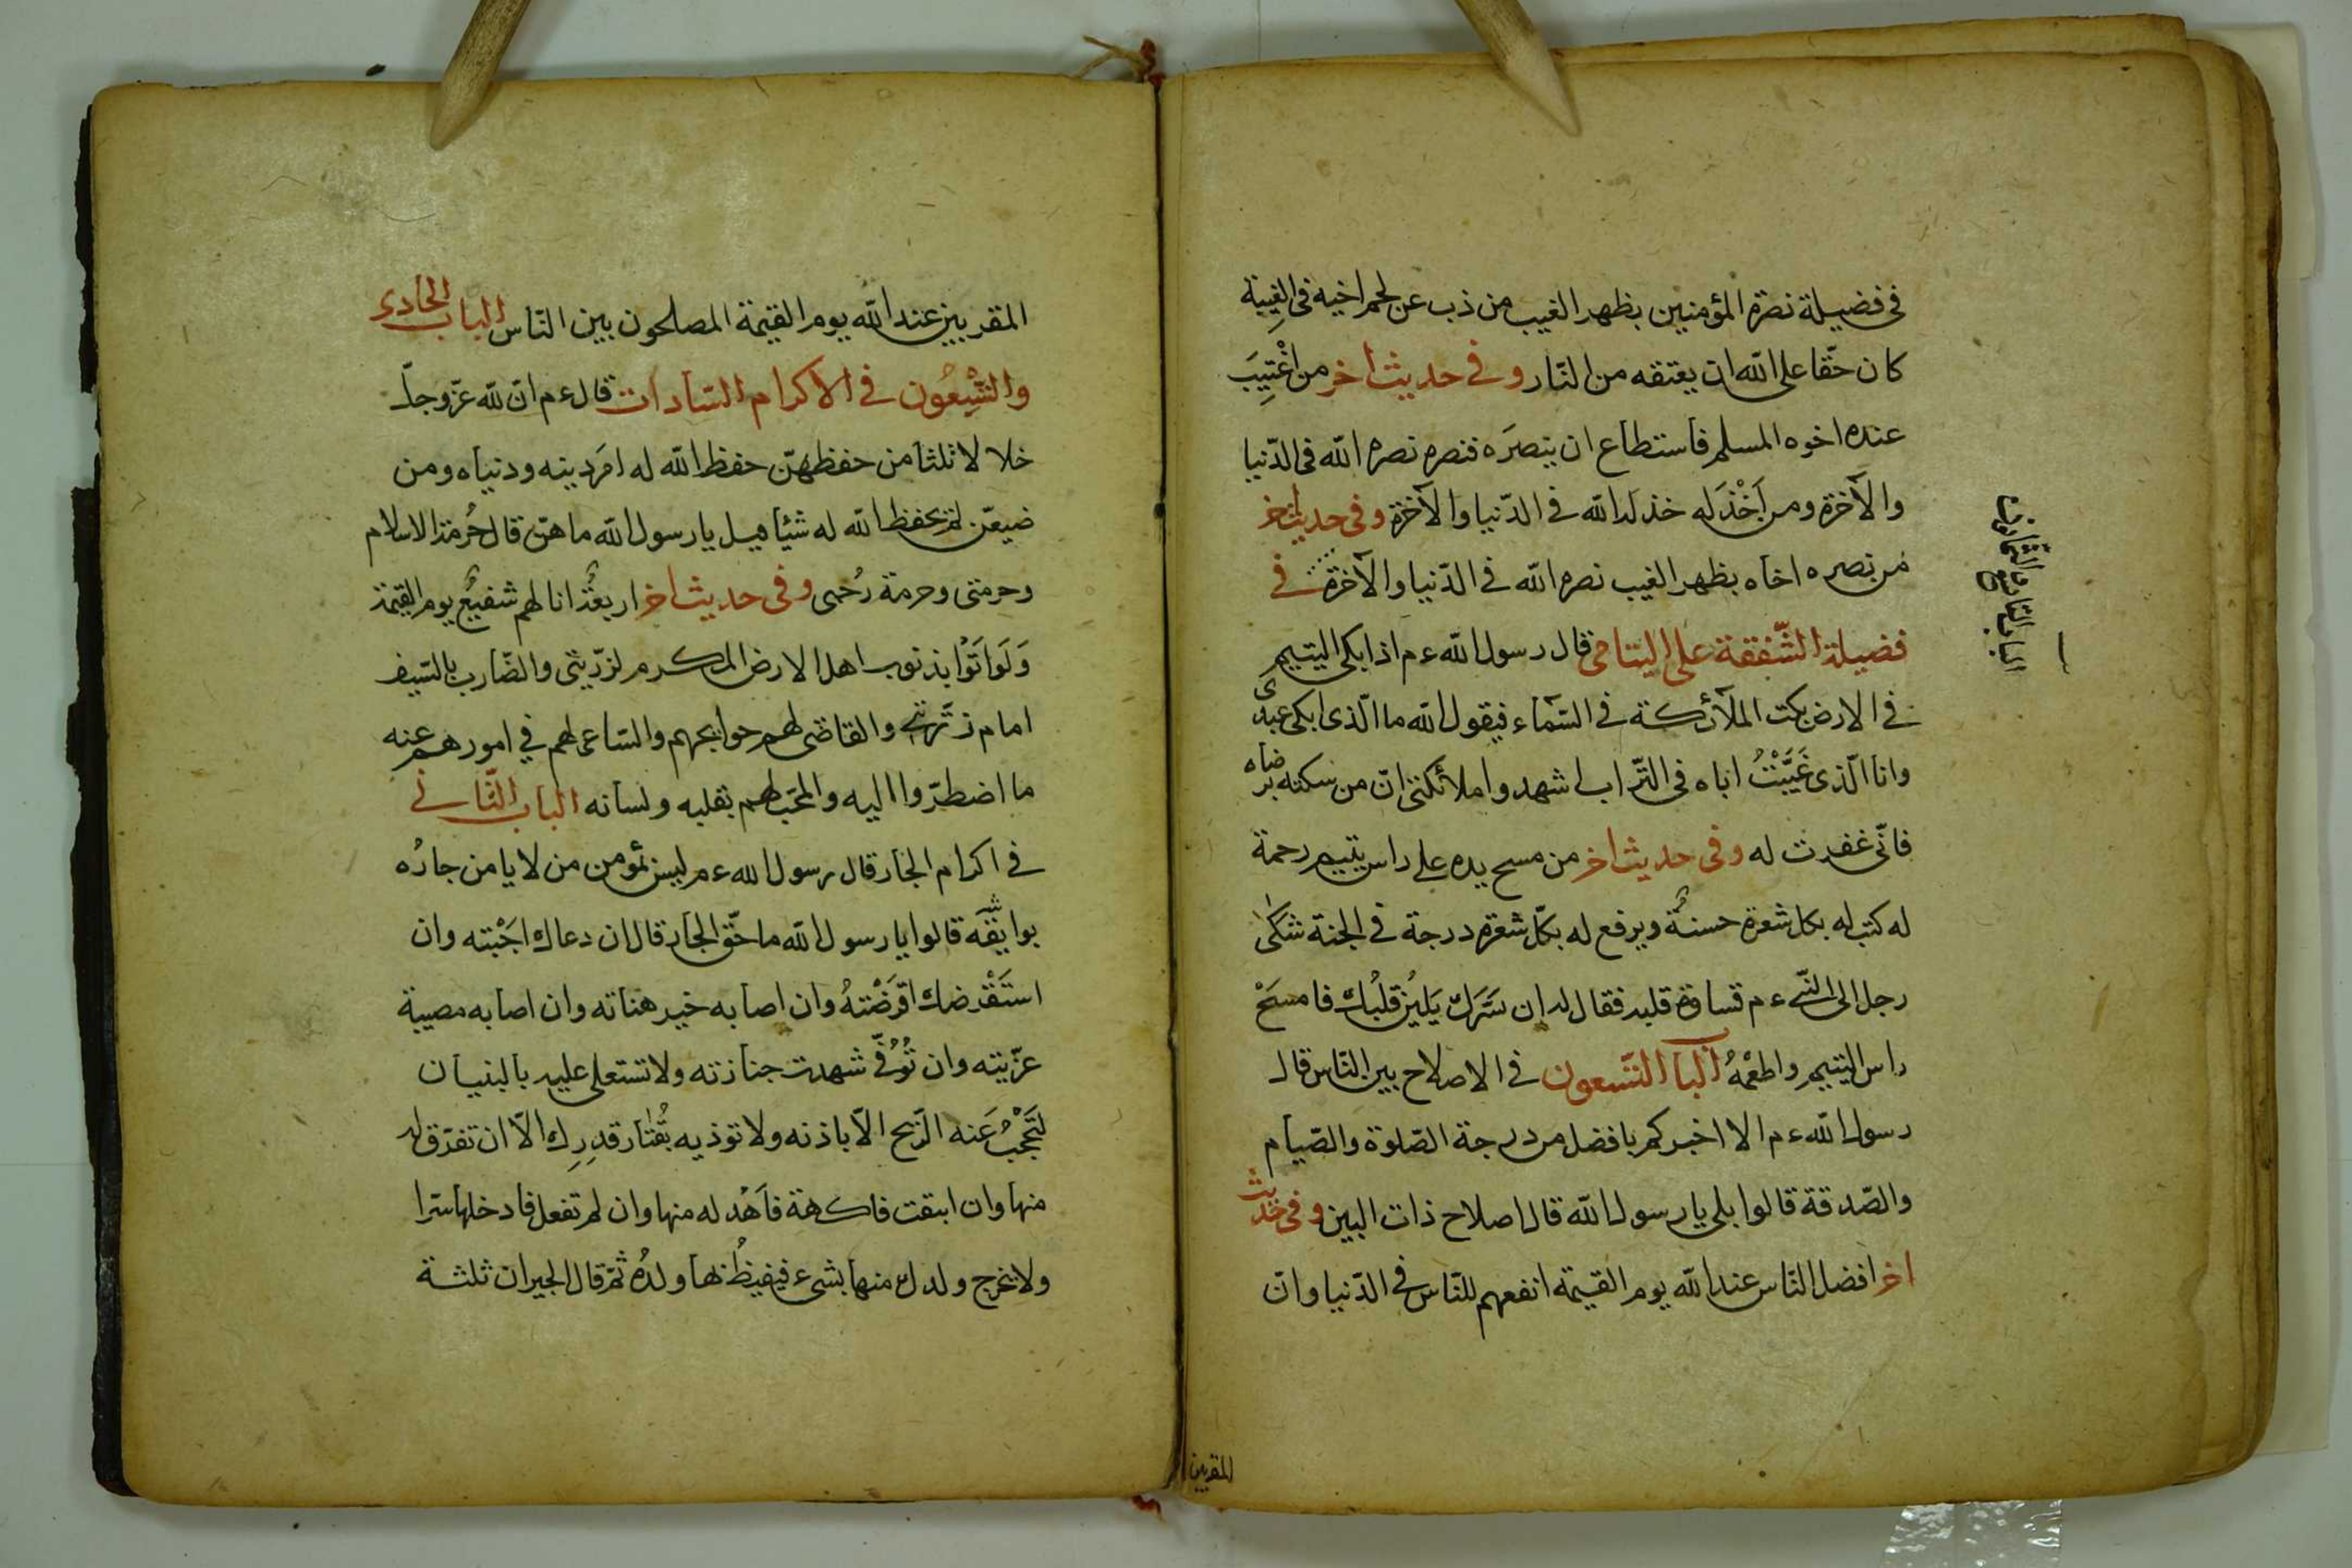 فى فضيلة نصرة المؤمنين بظهر الغيب من ذب عن لحم اخيه فى الغيبة
كان حقّا على الله ان يعتقه من النّار وفى حديث اخر من اغْتِيبَ
عنده اخوه المسلم فاستطاع ان ينصرَه فنصره نصره الله فى الدّنيا
والآخرة ومن اَخْذَله خذله الله فى الدّنيا والآخرة وفى حديث اخر
من نصره اخاه بظهر الغيب نصره الله فى الدّنيا والآخرة فى
الباب التاسع الثمانون
فضيلة الشّفقة على اليتامى قال رسول الله ءم اذا بكى اليتيم
فى الارض بكت الملآئكة فى السّمآء فيقول الله ما الّذى ابكى عبدى
وانا الّذى غَيَّبْتُ اباه فى التّراب اشهدوا ملائكتى انّ من سكته برضاه
فانّى غفرت له وفى حديث اخر من مسح يده على راس يتيم رحمة
له كتب له بكل شعرة حسنةٌ ويرفع له بكلّ شعرة درجة فى الجنة شكى
رجل الى النّبى ءم قساوة قلبه فقال له ان سَرَّك يَلِينُ قلبُك فامسَحْ
راس اليتيم واطعْمهُ الباب التّسعون فى الاصلاح بين النّاس قال
رسول الله ءم الا اخبركم بافضل من درجة الصّلوة والصّيام
والصّدقة قالوا بلى يا رسول الله قال اصلاح ذات البين وفى حديث
اخر افضل النّاس عند الله يوم القيمة انفعهم للنّاس فى الدّنيا وانّ
المقربين
المقربين عند الله يوم القيمة المصلحون بين النّاس الباب الحادى
والتّسِعُون فى الاكرام السّادات قال ءم انّ لله عزّ وجلّ
خلالا ثلثا من حفظهنّ حفظ الله له امر دينه ودنياه ومن
ضيعهّن لم يحفظ الله له شيئا قيل يا رسول الله ما هنّ قال حُرمة الاسلام
وحرمتى وحرمة رُحمى وفى حديث اخر اربعةٌ انا لهم شفيعٌ يوم القيمة
وَلَو اَتَوْا بذنوب اهل الارض المكرم لذرّيتى والضّارب بالسّيف
امام ذرّيتى والقاضى لهم حوايجهم والسّاعى لهم فى امورهم عنه
ما اضطرّوا اليه والمحَبّ لهم بقلبه ولسانه الباب الثّانى
فى اكرام الجار قال رسول الله ءم ليس بمؤمن من لا يامن جارُه
بوايقَه قالوا يا رسول الله ما حقّ الجار قال ان دعاك اجَبْته وان
استَقْرضك اقرَضْتهُ وان اصابه خير هناته وان اصابه مصيبة
عزّيته وان تُوُفّى شهدت جنازته ولا تستعلى عليه بالبنيان
لتَحْجُبَ عَنه الرّيح الّا باذنه ولا توذيه بقُتار قدرِك الّا ان تفرّق له
منها وان ابتعت فاكهة فاَهْد له منها وان لم تفعل فادخلها سّرا
ولا تخرج ولدك منها بشىء فيغيظُ بها ولدُه ثمّ قال الجيران ثلثة